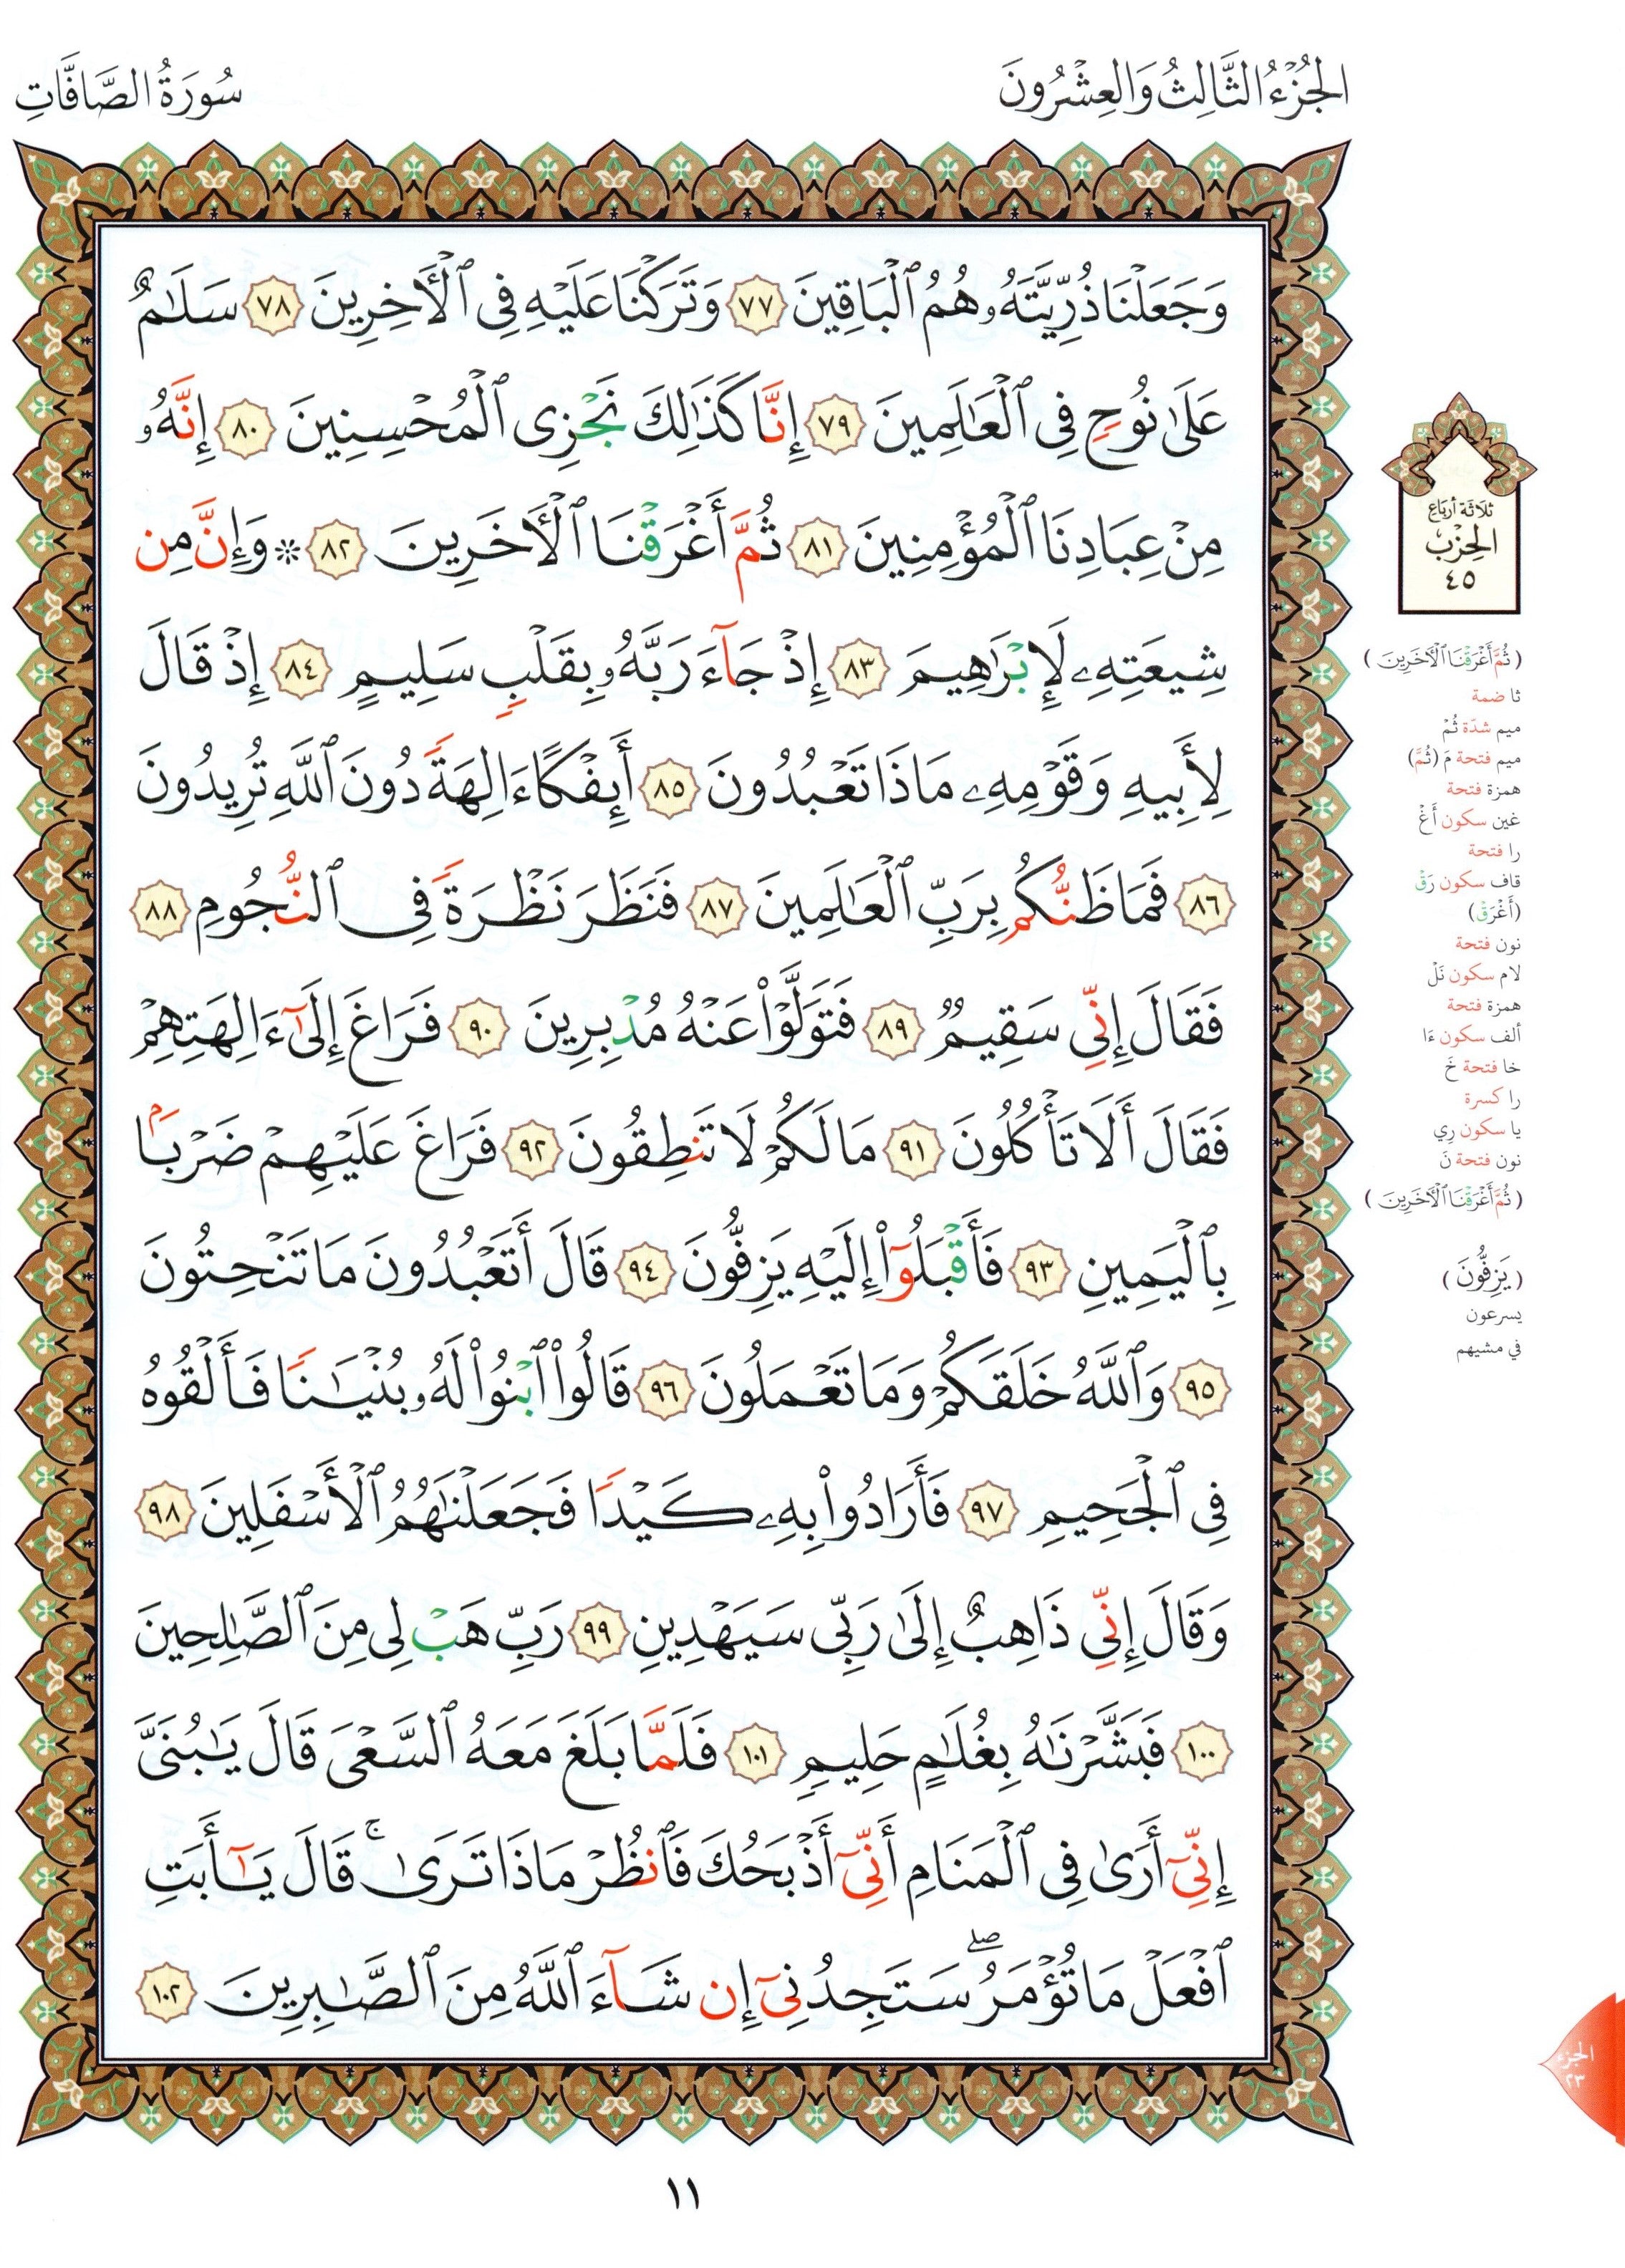 الجُزْءُ الثَّالِثُ وَالعِشْرُونَ
سُورَةُ الصَّافَّاتِ
وَجَعَلْنَا ذُرِّيَّتَهُۥ هُمُ ٱلْبَاقِينَ ٧٧ وَتَرَكْنَا عَلَيْهِ فِى ٱلْأَخِرِينَ ٧٨ سَلَٰمٌ
عَلَىٰ نُوحٍ فِى ٱلْعَٰلَمِينَ ٧٩ إِنَّا كَذَٰلِكَ نَجْزِى ٱلْمُحْسِنِينَ ٨٠ إِنَّهُۥ
مِنْ عِبَادِنَا ٱلْمُؤْمِنِينَ ٨١ ثُمَّ أَغْرَقْنَا ٱلْأَخَرِينَ ٨٢ ۞ وَإِنَّ مِن
شِيعَتِهِۦ لَإِبْرَٰهِيمَ ٨٣ إِذْ جَآءَ رَبَّهُۥ بِقَلْبٍ سَلِيمٍ ٨٤ إِذْ قَالَ
لِأَبِيهِ وَقَوْمِهِۦ مَاذَا تَعْبُدُونَ ٨٥ أَئِفْكًا ءَالِهَةً دُونَ ٱللَّهِ تُرِيدُونَ
٨٦ فَمَا ظَنُّكُم بِرَبِّ ٱلْعَٰلَمِينَ ٨٧ فَنَظَرَ نَظْرَةً فِى ٱلنُّجُومِ ٨٨
فَقَالَ إِنِّى سَقِيمٌ ٨٩ فَتَوَلَّوْا۟ عَنْهُ مُدْبِرِينَ ٩٠ فَرَاغَ إِلَىٰٓ ءَالِهَتِهِمْ
فَقَالَ أَلَا تَأْكُلُونَ ٩١ مَا لَكُمْ لَا تَنطِقُونَ ٩٢ فَرَاغَ عَلَيْهِمْ ضَرْبًۢا
بِٱلْيَمِينِ ٩٣ فَأَقْبَلُوٓا۟ إِلَيْهِ يَزِفُّونَ ٩٤ قَالَ أَتَعْبُدُونَ مَا تَنْحِتُونَ
٩٥ وَٱللَّهُ خَلَقَكُمْ وَمَا تَعْمَلُونَ ٩٦ قَالُوا۟ ٱبْنُوا۟ لَهُۥ بُنْيَٰنًا فَأَلْقُوهُ
فِى ٱلْجَحِيمِ ٩٧ فَأَرَادُوا۟ بِهِۦ كَيْدًا فَجَعَلْنَٰهُمُ ٱلْأَسْفَلِينَ ٩٨
وَقَالَ إِنِّى ذَاهِبٌ إِلَىٰ رَبِّى سَيَهْدِينِ ٩٩ رَبِّ هَبْ لِى مِنَ ٱلصَّٰلِحِينَ
١٠٠ فَبَشَّرْنَٰهُ بِغُلَٰمٍ حَلِيمٍ ١٠١ فَلَمَّا بَلَغَ مَعَهُ ٱلسَّعْىَ قَالَ يَٰبُنَىَّ
إِنِّىٓ أَرَىٰ فِى ٱلْمَنَامِ أَنِّىٓ أَذْبَحُكَ فَٱنظُرْ مَاذَا تَرَىٰ ۚ قَالَ يَٰٓأَبَتِ
ٱفْعَلْ مَا تُؤْمَرُ ۖ سَتَجِدُنِىٓ إِن شَآءَ ٱللَّهُ مِنَ ٱلصَّٰبِرِينَ ١٠٢
ثَلَاثَة أرباع
الحِزْب
٤٥
( ثُمَّ أَغْرَقْنَا ٱلْأَخَرِينَ )
ثا ضمة
ميم شدّة ثُمْ
ميم فتحة مَ (ثُمَّ)
همزة فتحة
غين سكون أَغْ
را فتحة
قاف سكون رَقْ
(أَغْرَقْ)
نون فتحة
لام سكون نَلْ
همزة فتحة
ألف سكون ءَا
خا فتحة خَ
را كسرة
يا سكون رِي
نون فتحة نَ
( ثُمَّ أَغْرَقْنَا ٱلْأَخَرِينَ )
( يَزِفُّونَ )
يسرعون
في مشيهم
الجزء
٢٣
١١